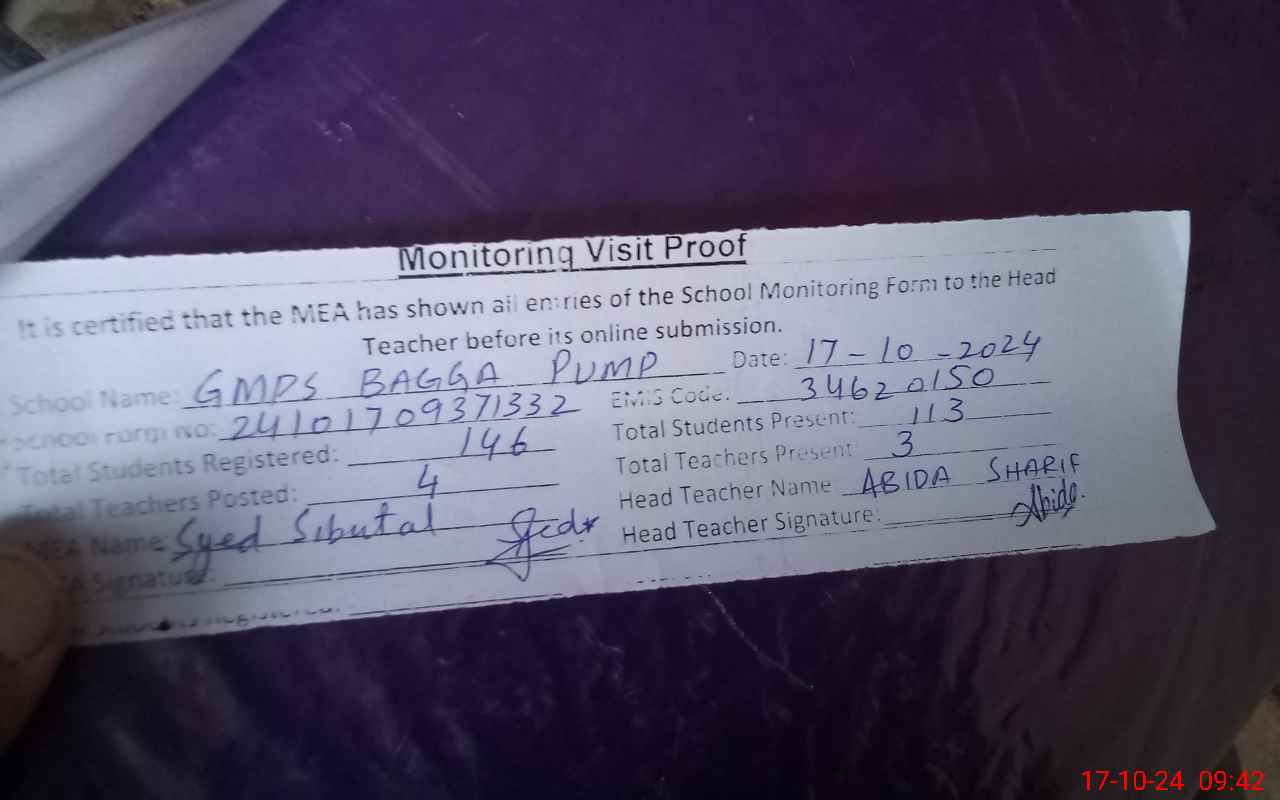 Monitoring Visit Proof
It is certified that the MEA has shown all entries of the School Monitoring Form to the Head
Teacher before its online submission.
School Name: GMPS BAGGA PUMP Date: 17-10-2024
School Form No: 24101709371332 EMIS Code: 34620150
Total Students Registered: 146 Total Students Present: 113
Total Teachers Posted: 4 Total Teachers Present 3
MEA Name: Syed Sibutal Head Teacher Name: ABIDA SHARIF
MEA Signature: Head Teacher Signature: Abida.
17-10-24 09:42